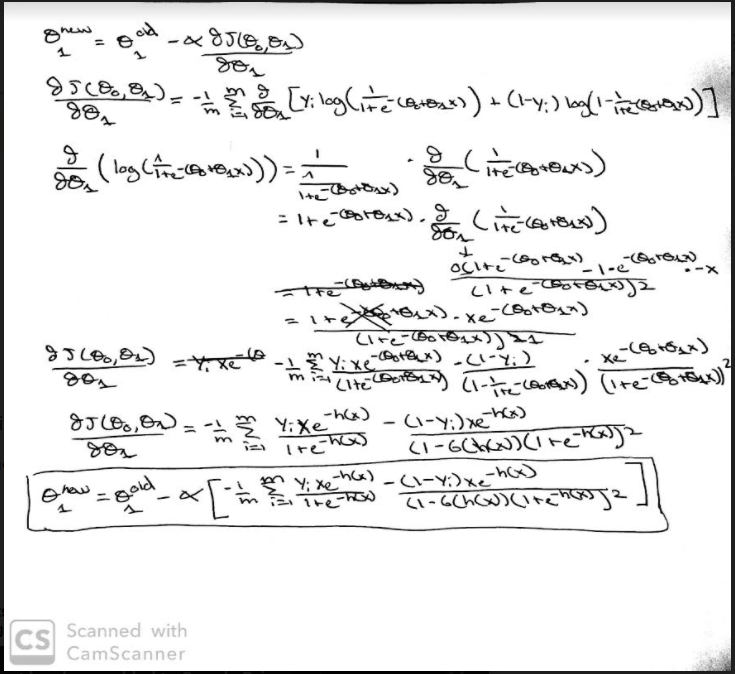 θ₁ⁿᵉʷ = θ₁ᵒˡᵈ - α ∂J(θ₀,θ₁)/∂θ₁
∂J(θ₀,θ₁)/∂θ₁ = -1/m Σᵢ₌₁ᵐ ∂/∂θ₁ [yᵢ log(1/(1+e^-(θ₀+θ₁x))) + (1-yᵢ) log(1-1/(1+e^-(θ₀+θ₁x)))]
∂/∂θ₁ (log(1/(1+e^-(θ₀+θ₁x)))) = 1/(1/(1+e^-(θ₀+θ₁x))) · ∂/∂θ₁ (1/(1+e^-(θ₀+θ₁x)))
= 1+e^-(θ₀+θ₁x) · ∂/∂θ₁ (1/(1+e^-(θ₀+θ₁x)))
↓
0(1+e^-(θ₀+θ₁x)) - 1·e^-(θ₀+θ₁x) · -x / (1+e^-(θ₀+θ₁x))²
= 1+e^-(θ₀+θ₁x) · xe^-(θ₀+θ₁x) / (1+e^-(θ₀+θ₁x))
∂J(θ₀,θ₁)/∂θ₁ = -1/m Σᵢ₌₁ᵐ yᵢ xe^-(θ₀+θ₁x)/(1+e^-(θ₀+θ₁x)) - (1-yᵢ)/(1-1/(1+e^-(θ₀+θ₁x))) · xe^-(θ₀+θ₁x)/(1+e^-(θ₀+θ₁x))²
∂J(θ₀,θ₁)/∂θ₁ = -1/m Σᵢ₌₁ᵐ yᵢxe^-h(x)/(1+e^-h(x)) - (1-yᵢ)xe^-h(x)/((1-σ(h(x))(1+e^-h(x))²
θ₁ⁿᵉʷ = θ₁ᵒˡᵈ - α[-1/m Σᵢ₌₁ᵐ yᵢxe^-h(x)/(1+e^-h(x)) - (1-yᵢ)xe^-h(x)/((1-σ(h(x))(1+e^-h(x))²]
CS Scanned with
CamScanner